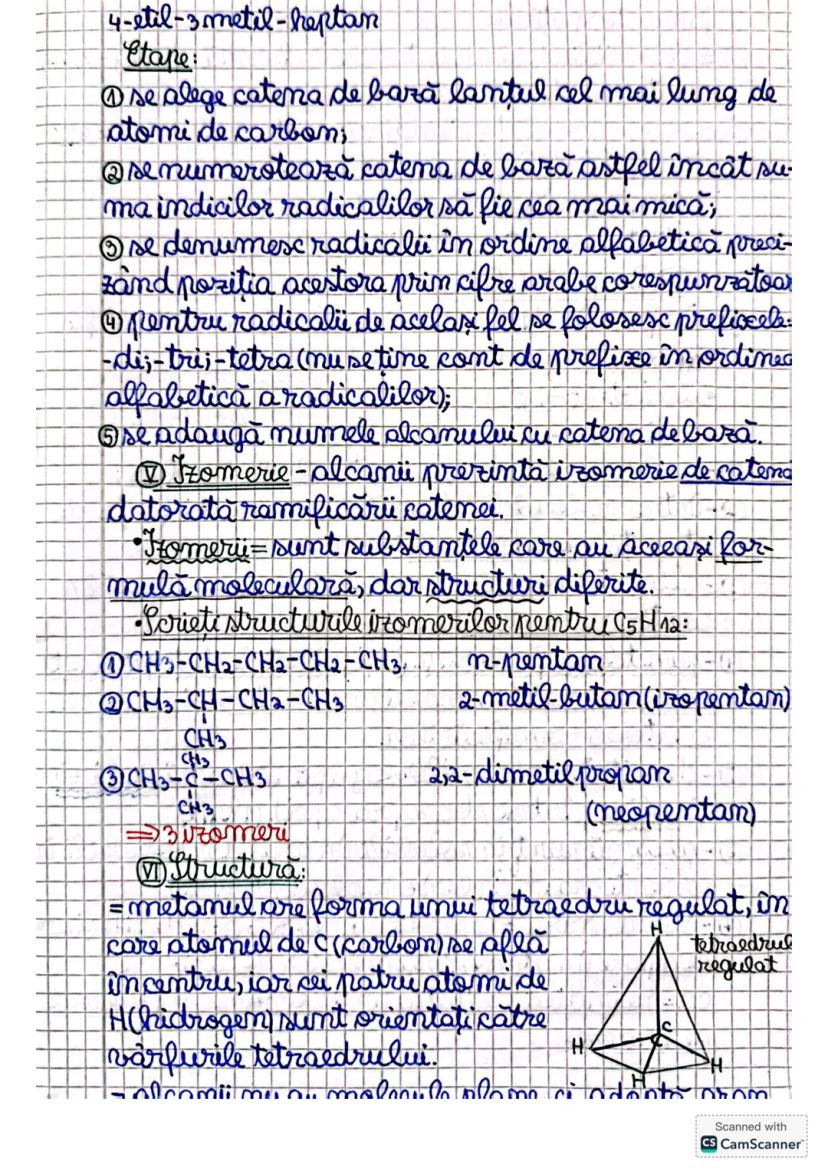 4-etil-3metil-heptan
Etape:
① se alege catena de bază lanțul cel mai lung de
atomi de carbon;
② se numerotează catena de bază astfel încât su-
ma indicilor radicalilor să fie cea mai mică;
③ se denumesc radicalii în ordine alfabetică preci-
zând poziția acestora prin cifre arabe corespunzătoar
④ pentru radicalii de același fel se folosesc prefixele:
-di;-tri;-tetra (nu se ține cont de prefixe în ordinea
alfabetică a radicalilor);
⑤ se adaugă numele alcanului cu catena de bază.
Ⓥ Izomerie - alcanii prezintă izomerie de catenă
datorată ramificării catenei.
• Izomerii = sunt substanțele care au aceeași for-
mulă moleculară, dar structuri diferite.
• Scrieți structurile izomerilor pentru C5H12:
① CH3-CH2-CH2-CH2-CH3. n-pentan
② CH3-CH-CH2-CH3 2-metil-butan (izopentan)
CH3
CH3
③ CH3-C-CH3 2,2-dimetilpropan
CH3 (neopentan)
=> 3 izomeri
VI Structură:
= metanul are forma unui tetraedru regulat, în
care atomul de C (carbon) se află
în centru, iar cei patru atomi de
H (hidrogen) sunt orientați către
vârfurile tetraedrului.
H
tetraedrul
regulat
C
H
H
H
- alcanii nu au molecule plane, ci adoptă
Scanned with
CS CamScanner